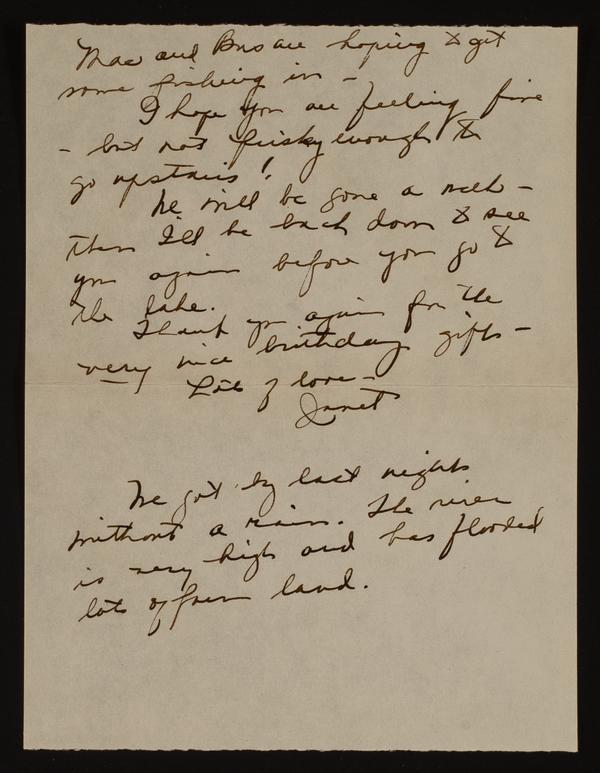 Mac and Bus are hoping to get
some fishing in -
I hope you are feeling fine
- but not frisky enough to
go upstairs!
We will be gone a week -
then I'll be back down to see
you again before you go to
the lake.
Thank you again for the
very nice birthday gifts -
Lots of love -
Janet
We got by last night
without a rain. The river
is very high and has flooded
lots of farm land.